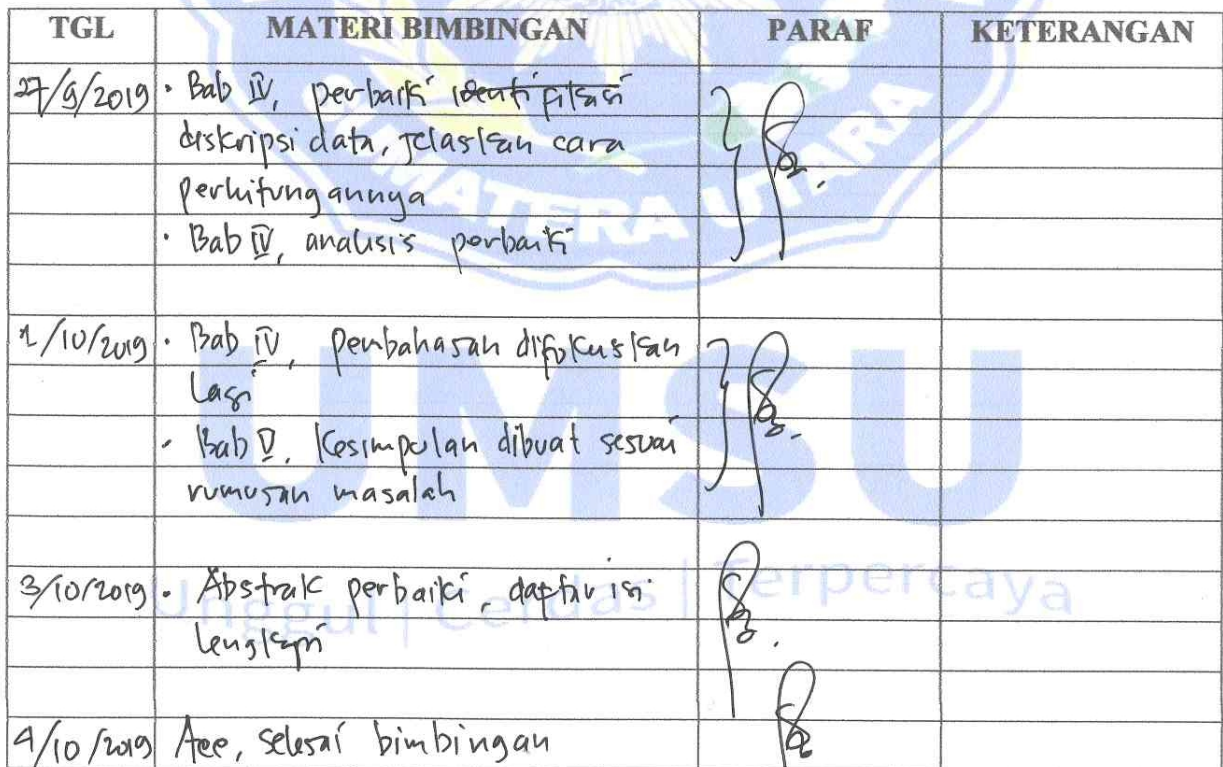 TGL MATERI BIMBINGAN PARAF KETERANGAN
27/9/2019 · Bab IV, perbaiki identifikasi
diskripsi data, jelaskan cara
perhitungannya
· Bab IV, analisis perbaiki
1/10/2019 · Bab IV, pembahasan difokuskan
lagi
· Bab V, Kesimpulan dibuat sesuai
rumusan masalah
3/10/2019 · Abstrak perbaiki, daftar isi
lengkapi
4/10/2019 Acc, selesai bimbingan
SUMATERA UTARA
UMSU
Unggul | Cerdas | Terpercaya